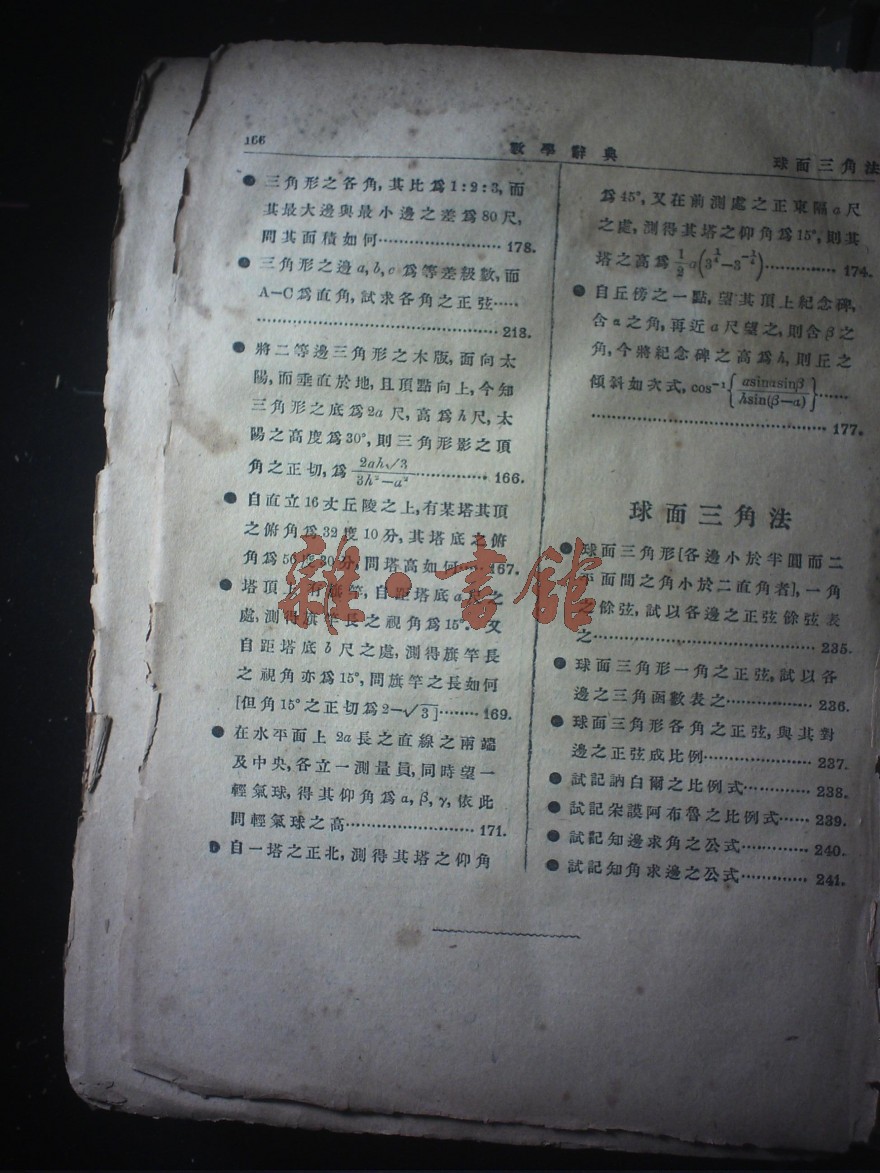 166
數學辭典
球面三角法
● 三角形之各角,其比爲1:2:3,而
其最大邊與最小邊之差爲80尺,
問其面積如何……………………178.
● 三角形之邊a,b,c爲等差級數,而
A-C爲直角,試求各角之正弦……
……………………………………218.
● 將二等邊三角形之木版,面向太
陽,而垂直於地,且頂點向上,今知
三角形之底爲2a尺,高爲h尺,太
陽之高度爲30°,則三角形影之頂
角之正切,爲 2ah√3/(3h²-a²)……………166.
● 自直立16丈丘陵之上,有某塔其頂
之俯角爲32度10分,其塔底之俯
角爲56度30分,問塔高如何……167.
● 塔頂上有旗竿,自距塔底a尺之
處,測得旗竿長之視角爲15°.又
自距塔底b尺之處,測得旗竿長
之視角亦爲15°,問旗竿之長如何
[但角15°之正切爲2-√3]………169.
● 在水平面上2a長之直線之兩端
及中央,各立一測量員,同時望一
輕氣球,得其仰角爲α,β,γ,依此
問輕氣球之高……………………171.
● 自一塔之正北,測得其塔之仰角
爲45°,又在前測處之正東隔a尺
之處,測得其塔之仰角爲15°,則其
塔之高爲 1/2 a(3^{1/4}-3^{-1/4})……………174.
● 自丘傍之一點,望其頂上紀念碑,
含α之角,再近a尺望之,則含β之
角,今將紀念碑之高爲h,則丘之
傾斜如次式,cos⁻¹{asinαsinβ/hsin(β-α)}……
……………………………………177.
球面三角法
● 球面三角形[各邊小於半圓而二
平面間之角小於二直角者],一角
之餘弦,試以各邊之正弦餘弦表
之……………………………………235.
● 球面三角形一角之正弦,試以各
邊之三角函數表之………………236.
● 球面三角形各角之正弦,與其對
邊之正弦成比例…………………237.
● 試記訥白爾之比例式……………238.
● 試記朵謨阿布魯之比例式………239.
● 試記知邊求角之公式……………240.
● 試記知角求邊之公式……………241.
雜·書館